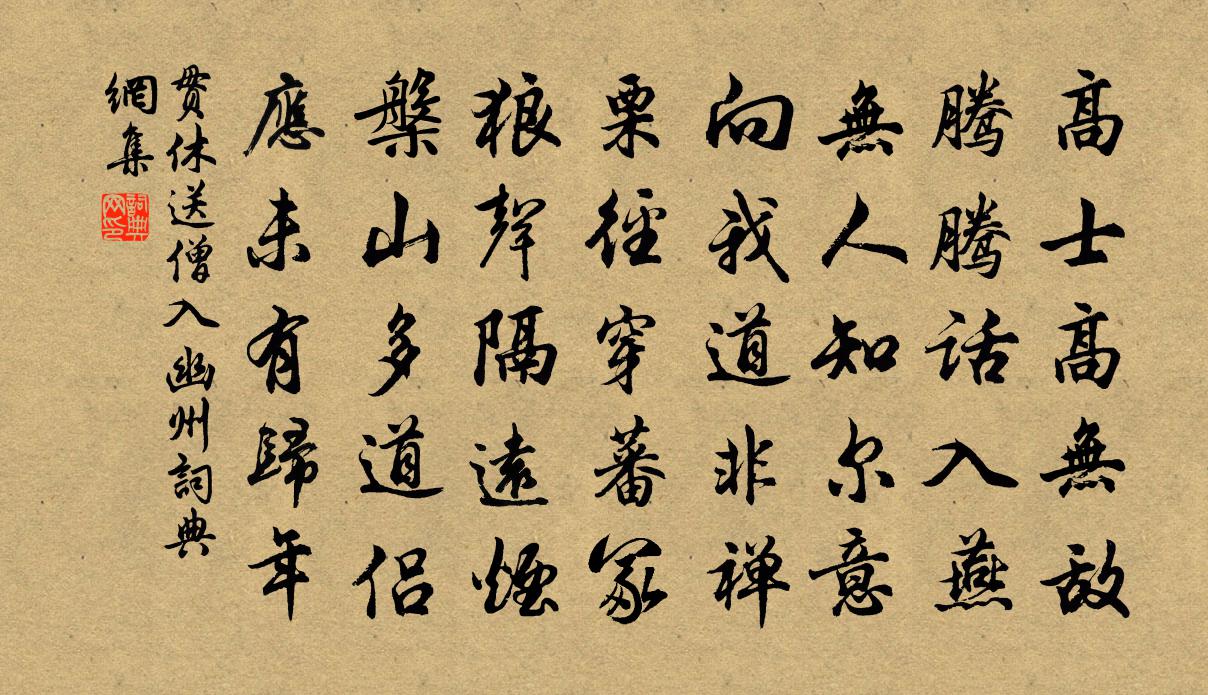 高士高無敵
騰騰話入燕
無人知尔意
向我道非禅
栗徑穿蕃冢
狼聲隔遠煙
槃山多道侶
應未有歸年
貫休送僧入幽州詞典
網集
詞典网印